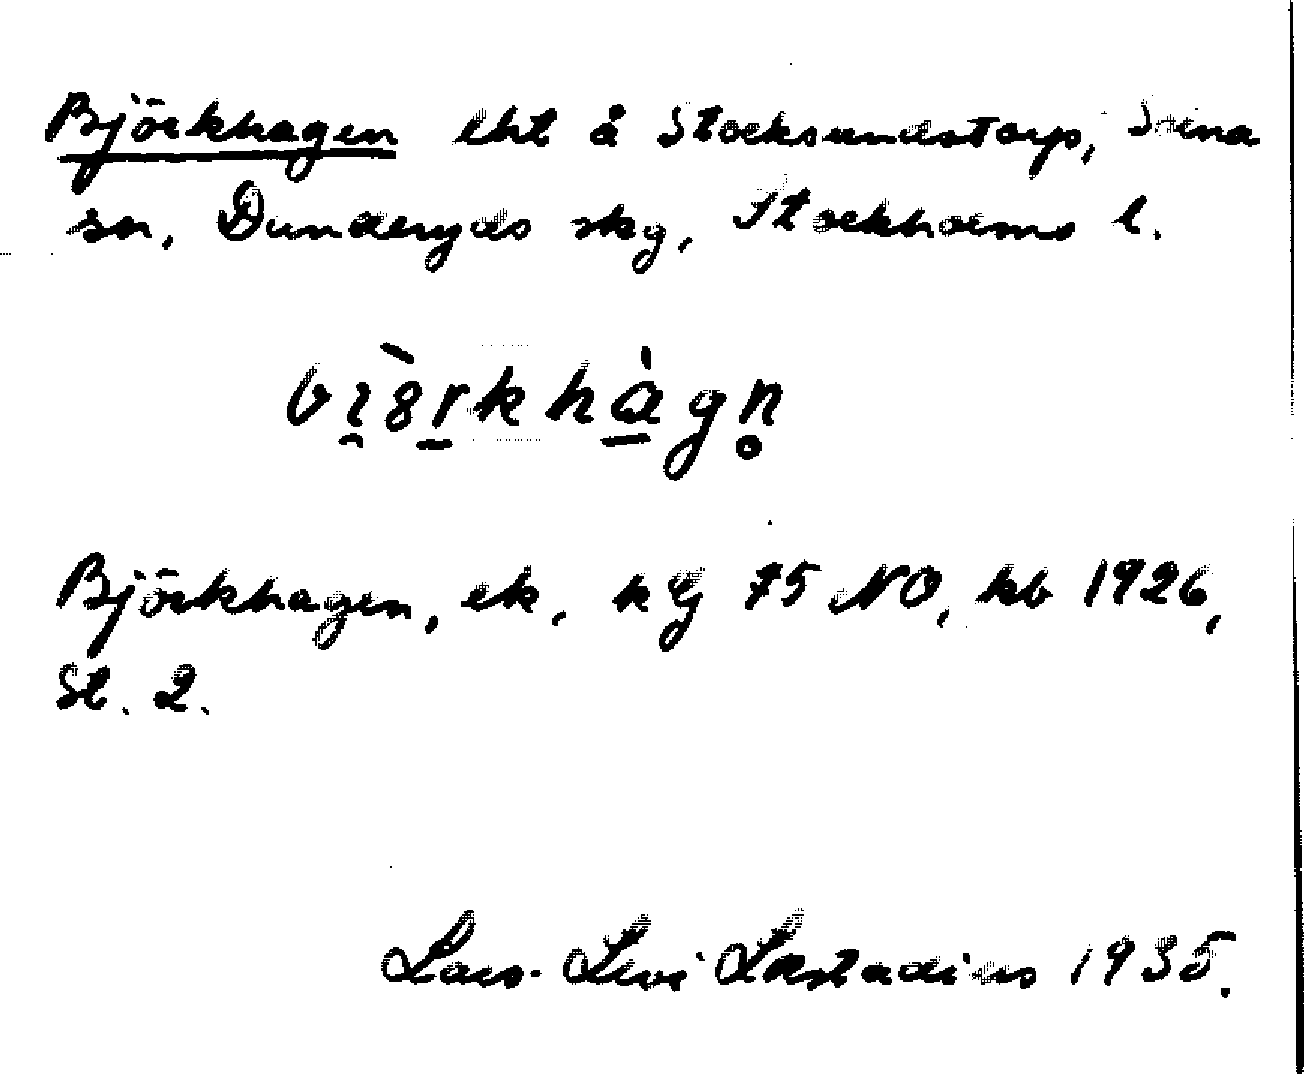 Björkhagen lht å Stocksundstorp, Solna
sn, Danderyds skg, Stockholms l.
Björkhagen, ek, 75 NO, kb 1926,
Bl. 2.
Lars-Levi Læstadius 1935.